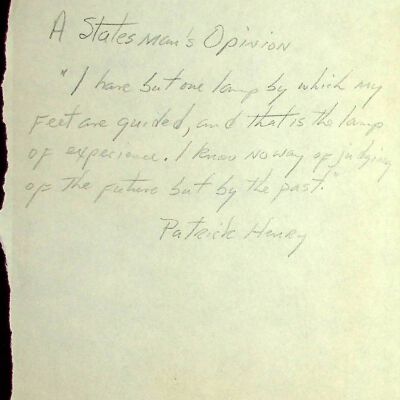 A Statesman's Opinion
"I have but one lamp by which my
feet are guided, and that is the lamp
of experience. I know no way of judging
of the future but by the past."
Patrick Henry